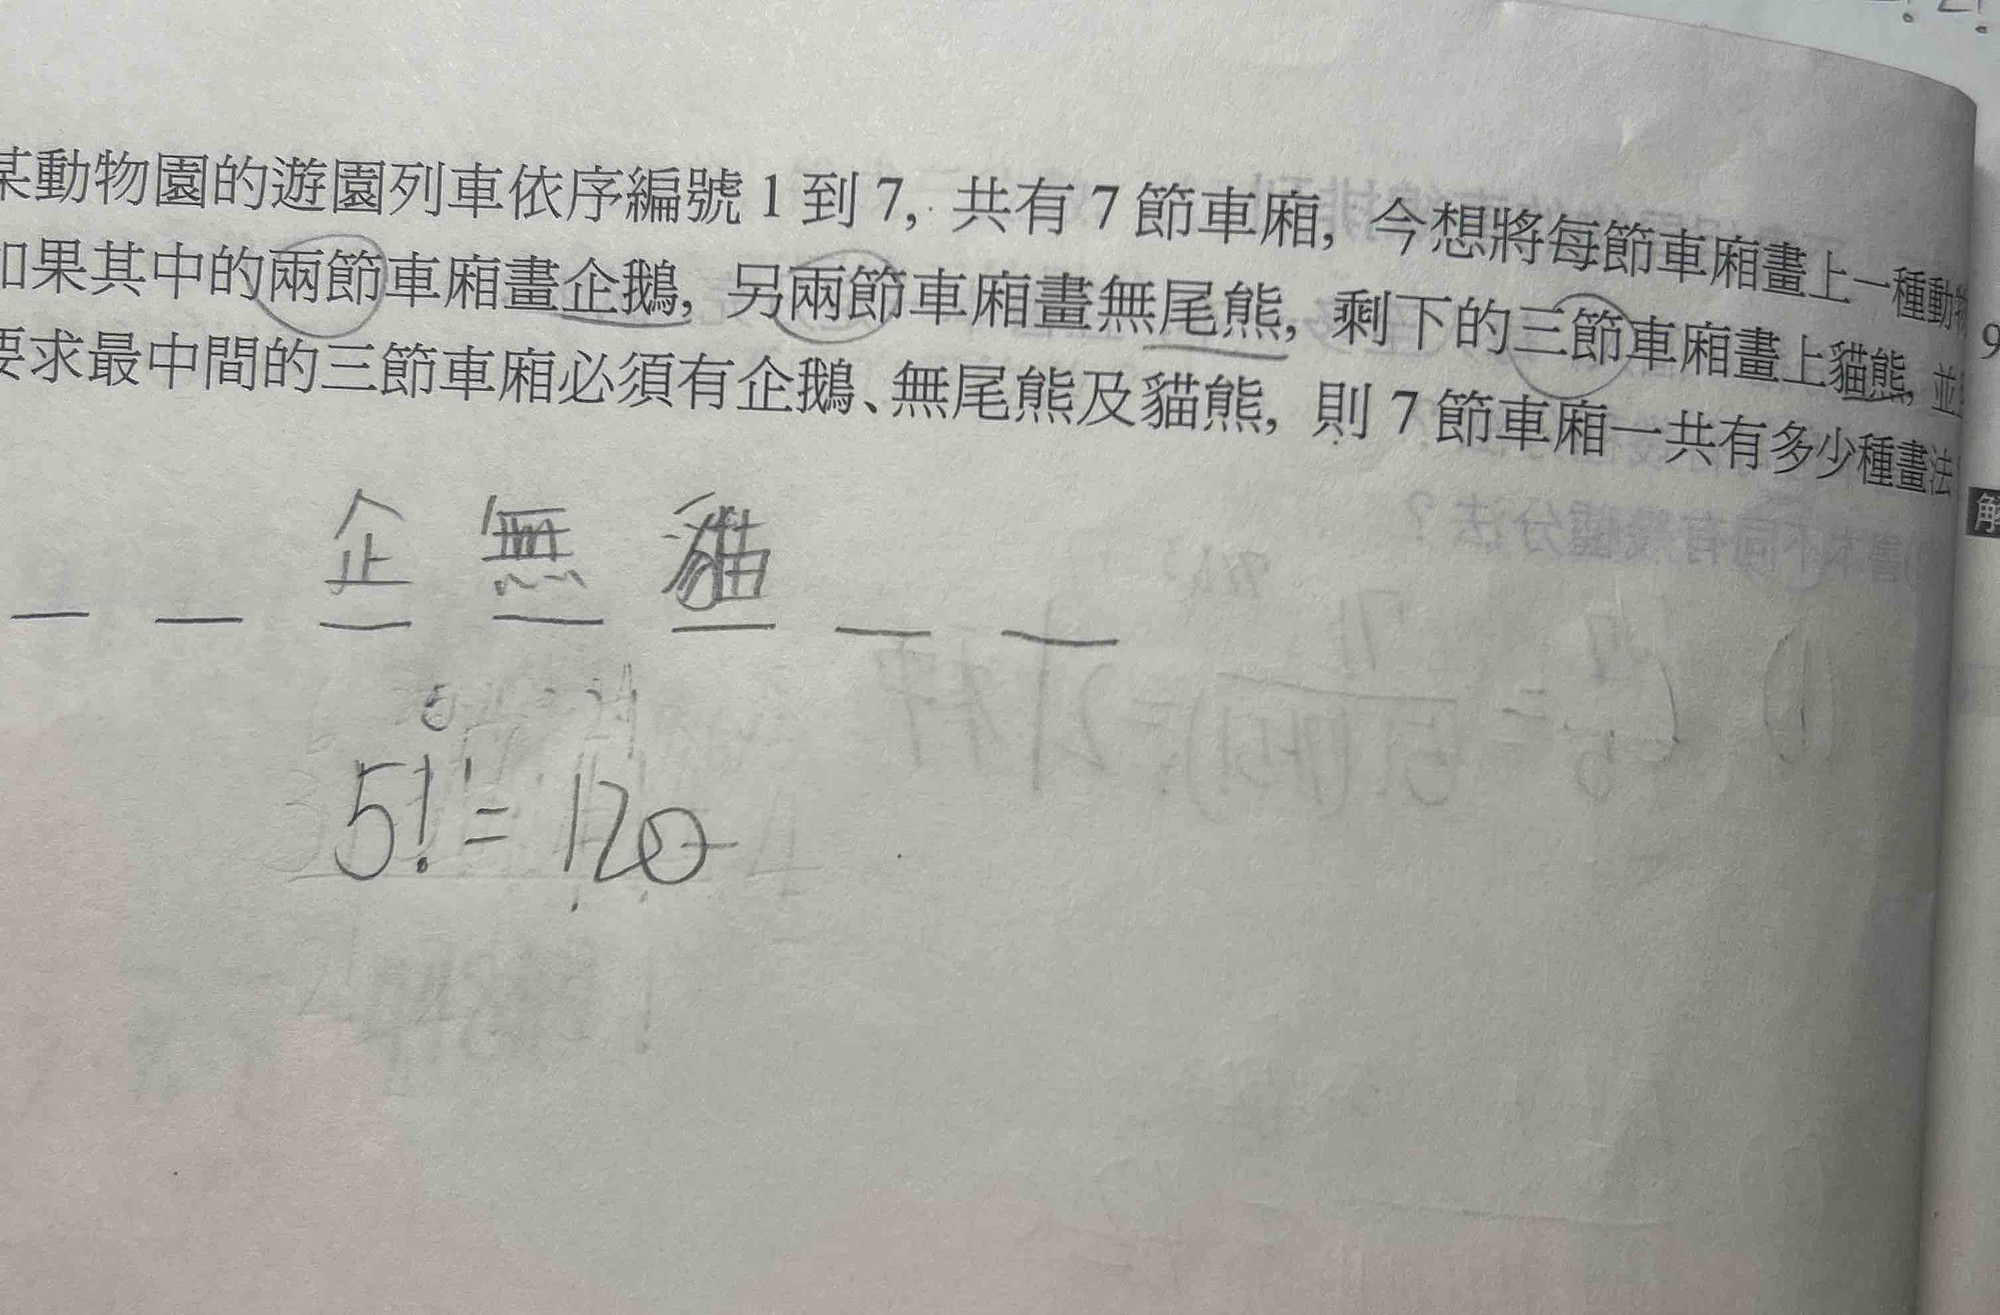 某動物園的遊園列車依序編號 1 到 7, 共有 7 節車廂, 今想將每節車廂畫上一種動物
如果其中的兩節車廂畫企鵝, 另兩節車廂畫無尾熊, 剩下的三節車廂畫上貓熊, 並
要求最中間的三節車廂必須有企鵝、無尾熊及貓熊, 則 7 節車廂一共有多少種畫法
9
解
企 無 貓
5! = 120